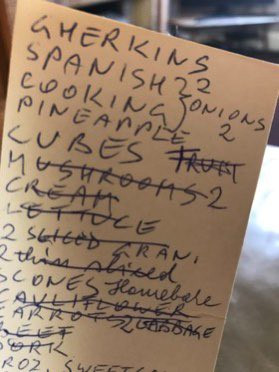 GHERKINS
SPANISH 22
COOKING } ONIONS
PINEAPPLE 2
CUBES FRUIT
MUSHROOMS 2
CREAM
LETTUCE
2 SLICED GRAN.
2 thin sliced
SCONES Homebake
CAULIFLOWER
CARROTS 2 CABBAGE
BEEF
PORK
FROZ. SWEETCO